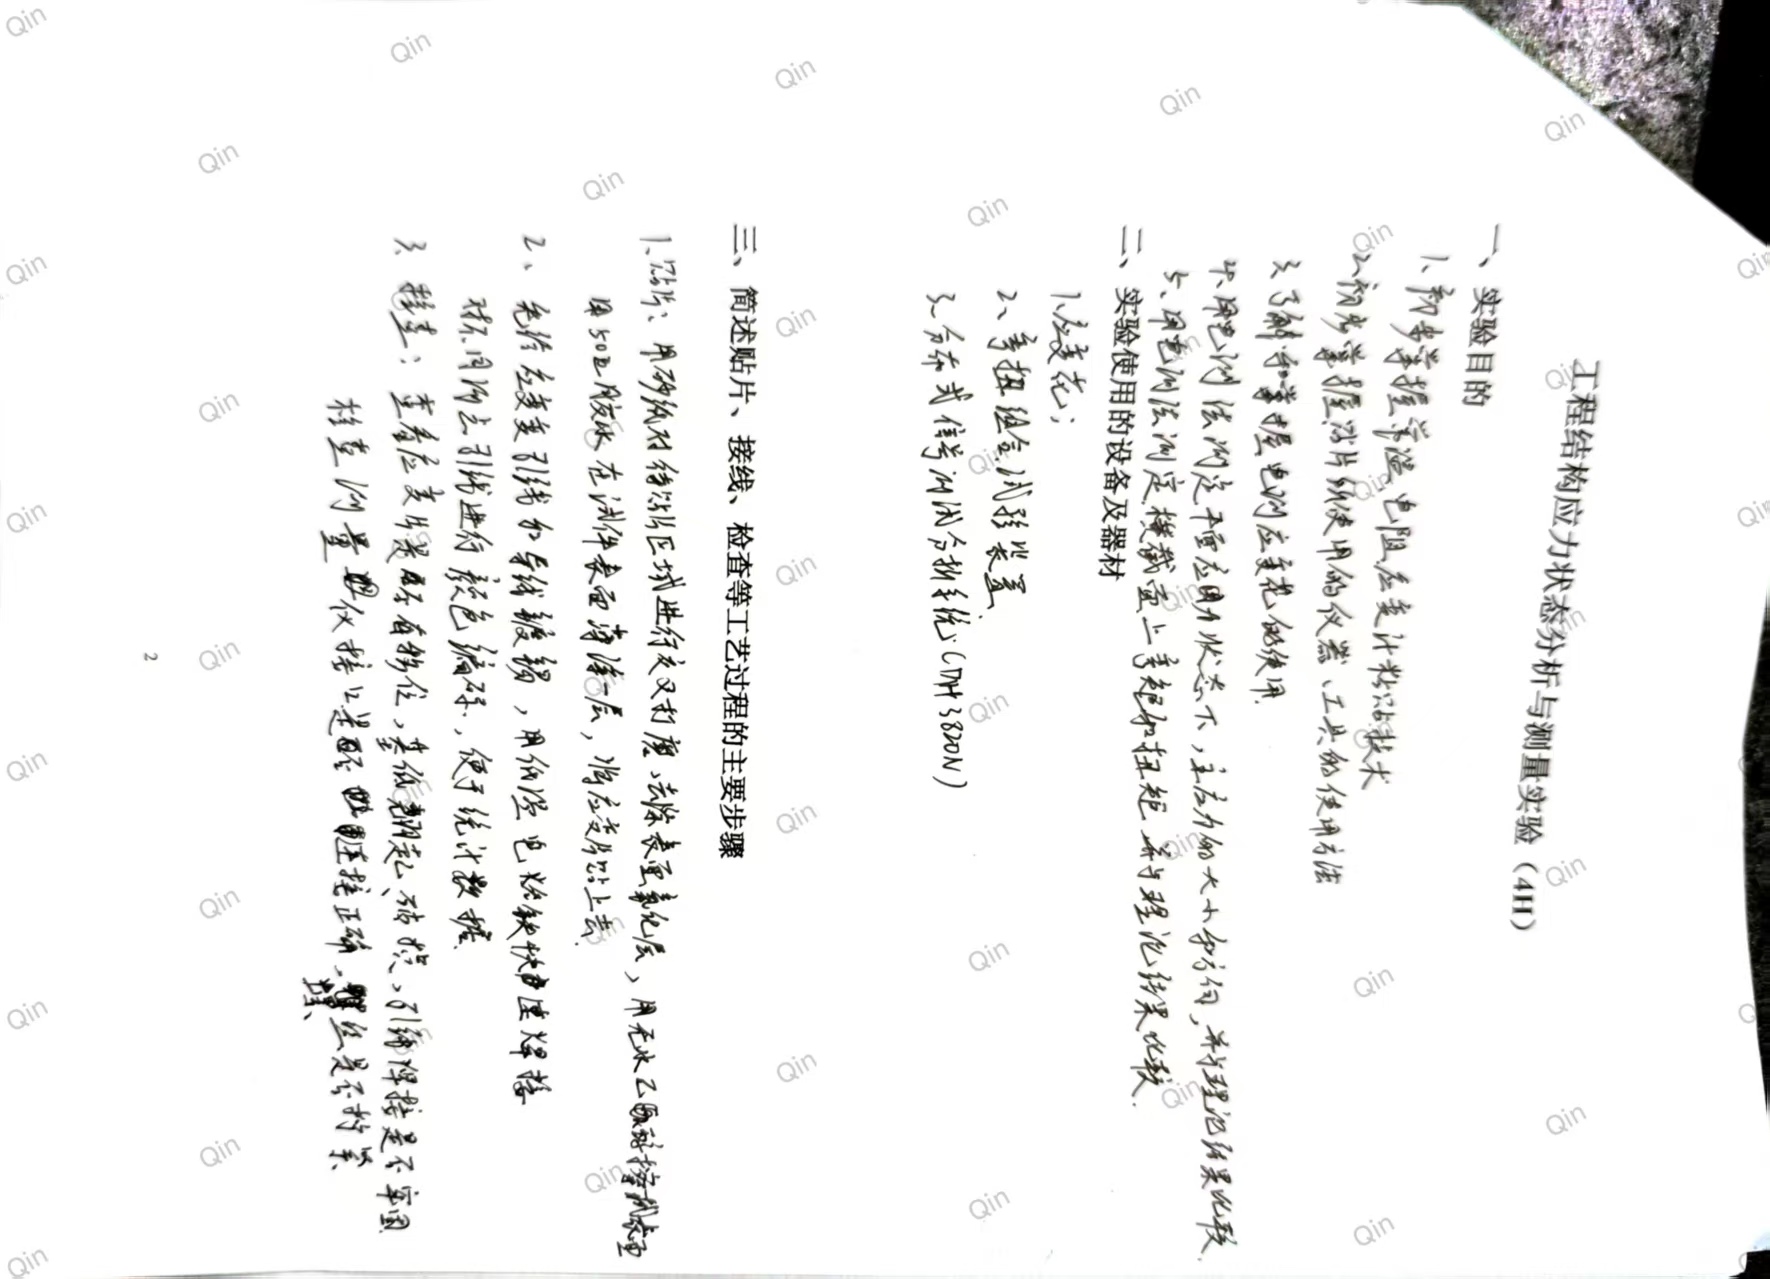 工程结构应力状态分析与测量实验（4H）
一、实验目的
1、初步掌握常温电阻应变计粘贴技术
2、初步掌握贴片须使用的仪器、工具的使用方法
3、了解和掌握电测应变仪的使用.
4、用电测法测定平面应力状态下，主应力的大小和方向，并与理论结果比较.
5、用电测法测定横截面上弯矩和扭矩 并与理论结果比较.
二、实验使用的设备及器材
1、应变花；
2、弯扭组合试验装置
3、分布式信号测试分析系统（DH3820N）
三、简述贴片、接线、检查等工艺过程的主要步骤
1、贴片：用砂纸对待贴片区域进行交叉打磨，去除表面氧化层，用无水乙醇擦拭表面
用502胶水在试件表面薄涂一层，将应变片贴上去.
2、先给应变引线和导线镀锡，用低温电烙铁快速焊接
对不同测点引线进行颜色编码，便于统计数据.
3、检查：查看应变片是否有移位，基底翘起、破损，引线焊接是否牢固
检查测量仪接口是否连接正确，是否拧紧、
2
Qin